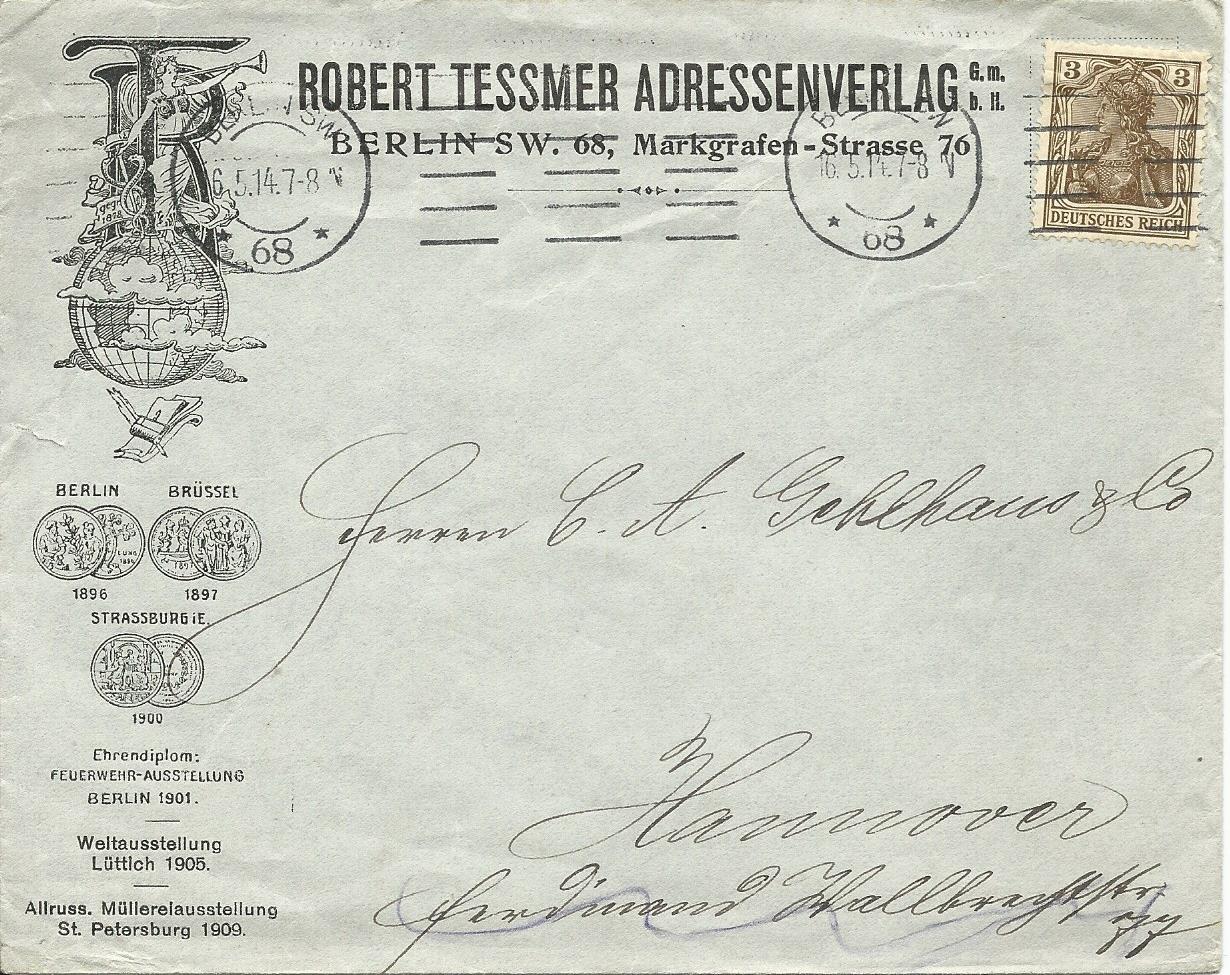 ROBERT TESSMER ADRESSENVERLAG G.m.b.H.
BERLIN SW. 68, Markgrafen-Strasse 76
3 3
DEUTSCHES REICH
BERLIN SW
16.5.14.7-8 V
* 68 *
BERLIN SW
16.5.14.7-8 V
* 68 *
TR
gegr.
1878
BERLIN BRÜSSEL
1896 1897
STRASSBURG i E.
1900
Ehrendiplom:
FEUERWEHR-AUSSTELLUNG
BERLIN 1901.
Weltausstellung
Lüttich 1905.
Allruss. Müllereiausstellung
St. Petersburg 1909.
Herren C. A. Gehlhaus & Co
Hannover
Ferdinand Wallbrechtstr
77